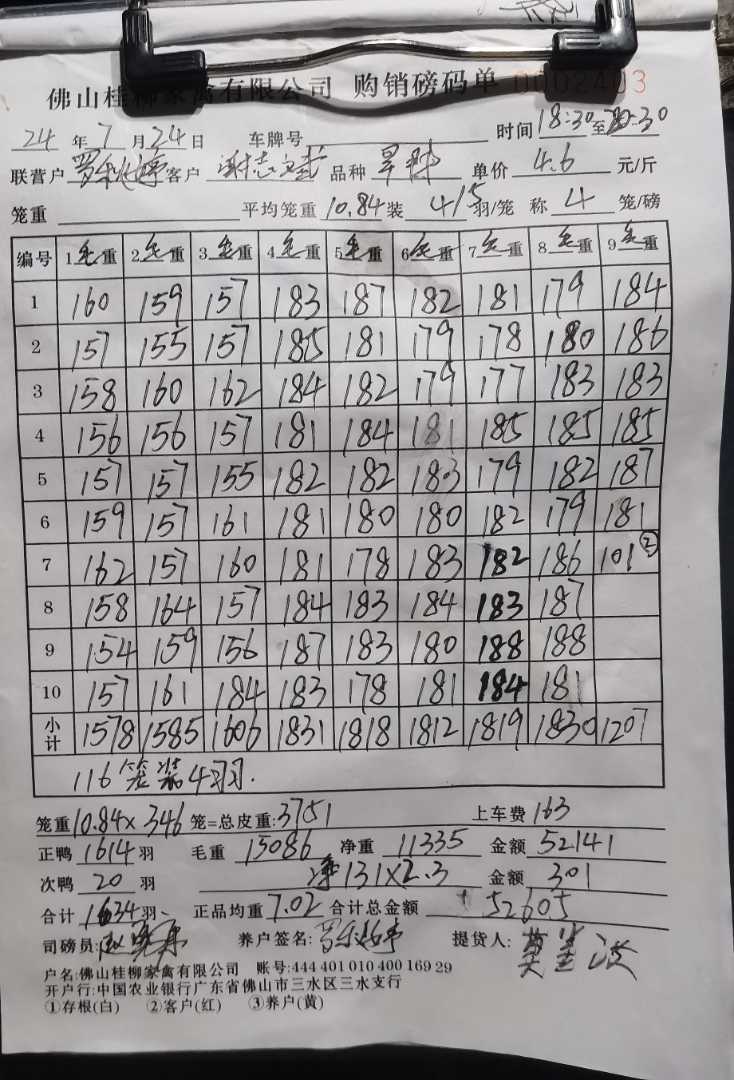 佛山桂柳家禽有限公司 购销磅码单 0002403
24 年 7 月 24 日 车牌号 时间 18:30 至 20:30
联营户 客户 谢志斌 品种 单价 4.6 元/斤
笼重 平均笼重 10.84 装 4/5 羽/笼 称 4 笼/磅
编号 1毛重 2毛重 3毛重 4毛重 5毛重 6毛重 7毛重 8毛重 9毛重
1 160 159 157 183 187 182 181 179 184
2 157 155 157 185 181 179 178 180 186
3 158 160 162 184 182 179 177 183 183
4 156 156 157 181 184 181 185 185 185
5 157 157 155 182 182 183 179 182 187
6 159 157 161 181 180 180 182 179 181
7 162 157 160 181 178 183 182 186 101②
8 158 164 157 184 183 184 183 187
9 154 159 156 187 183 180 188 188
10 157 161 184 183 178 181 184 181
小计 1578 1585 1606 1831 1818 1812 1819 1830 1207
116笼装4羽.
笼重 10.84× 346 笼=总皮重: 3751 上车费 163
正鸭 1614 羽 毛重 15086 净重 11335 金额 52141
次鸭 20 羽 净131×2.3 金额 301
合计 1634 羽 正品均重 7.02 合计总金额 52605
司磅员: 养户签名: 提货人:
户名:佛山桂柳家禽有限公司 账号:444 401 010 400 169 29
开户行:中国农业银行广东省佛山市三水区三水支行
①存根(白) ②客户(红) ③养户(黄)